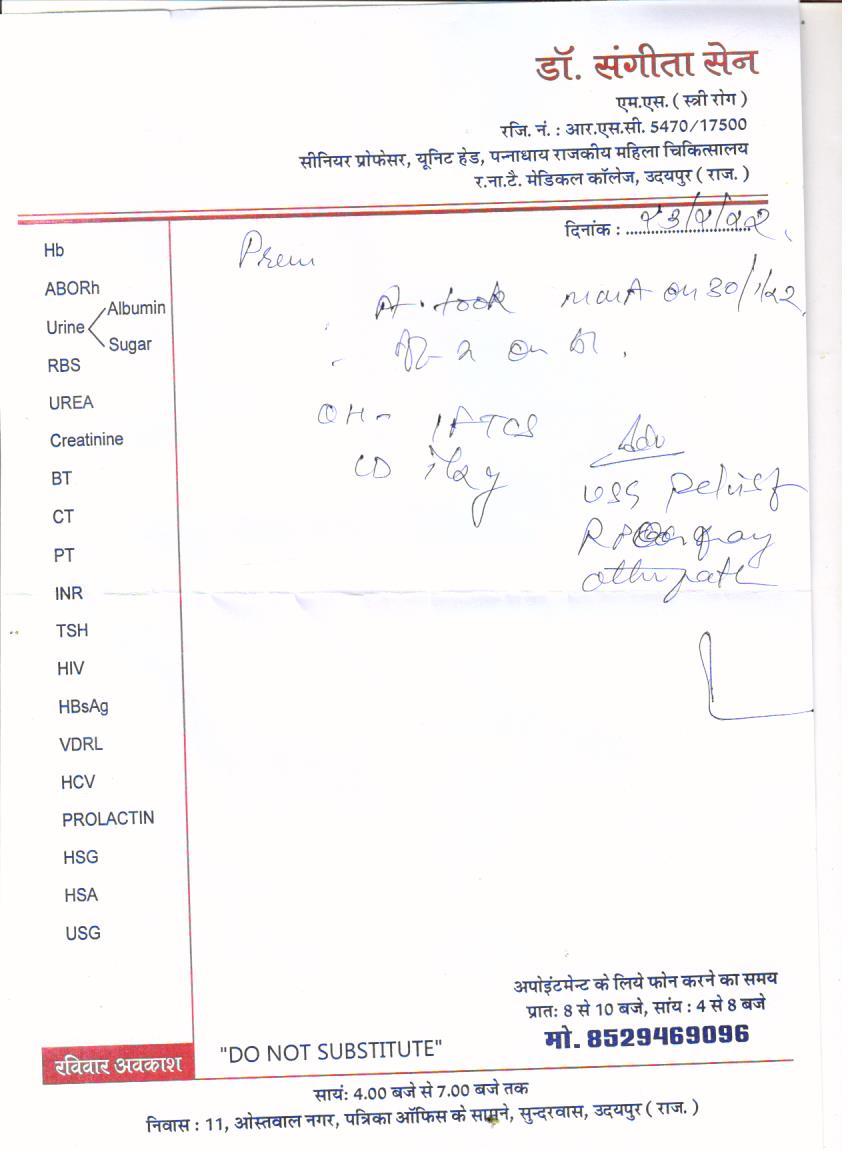 डॉ. संगीता सेन
एम.एस. ( स्त्री रोग )
रजि. नं. : आर.एस.सी. 5470/17500
सीनियर प्रोफेसर, यूनिट हेड, पन्नाधाय राजकीय महिला चिकित्सालय
र.ना.टै. मेडिकल कॉलेज, उदयपुर ( राज. )
दिनांक :
Hb
Prem
ABORh
took on 30/1/22
Albumin
Urine
Sugar
RBS
UREA
OH-
Adv
Creatinine
BT
USG Pelvis
CT
PT
INR
TSH
HIV
HBsAg
VDRL
HCV
PROLACTIN
HSG
HSA
USG
अपोइंटमेन्ट के लिये फोन करने का समय
प्रातः 8 से 10 बजे, सांय : 4 से 8 बजे
मो. 8529469096
रविवार अवकाश
"DO NOT SUBSTITUTE"
सायं: 4.00 बजे से 7.00 बजे तक
निवास : 11, ओस्तवाल नगर, पत्रिका ऑफिस के सामने, सुन्दरवास, उदयपुर ( राज. )